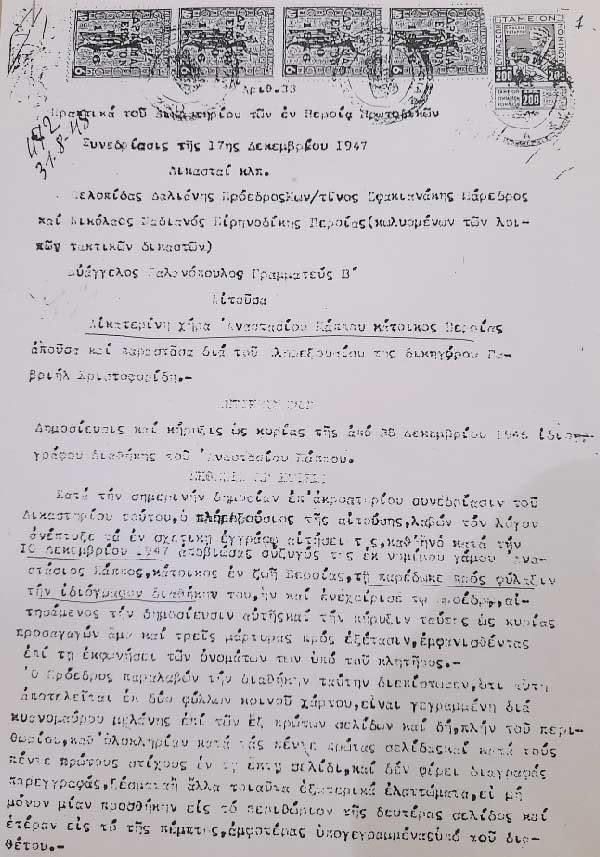 1
ΤΑΜΕΙΟΝ
200 200
200
Αριθ.33
Πρακτικά τοῦ Δικαστηρίου τῶν ἐν Βεροίᾳ Πρωτοδικῶν
442
31-8-48
Συνεδρίασις τῆς 17ης Δεκεμβρίου 1947
Δικασταί κλπ.
Πελοπίδας Δαλιάνης Πρόεδρος Κων/τῖνος Σφακιανάκης Πάρεδρος
καί Νικόλαος Παδιανός Εἰρηνοδίκης Βεροίας(κωλυομένων τῶν λοι-
πῶν τακτικῶν δικαστῶν)
Εὐάγγελος Γαλανόπουλος Γραμματεύς Β΄
Αἰτοῦσα
Αἰκατερίνη χήρα Ἀναστασίου Κάππου κάτοικος Βεροίας
ἀποῦσα καί παραστᾶσα διά τοῦ πληρεξουσίου της δικηγόρου Γα-
βριήλ Χριστοφορίδη.-
Δημοσίευσις καί κήρυξις ὡς κυρίας τῆς ἀπό 30 Δεκεμβρίου 1946 ἰδιο-
γράφου Διαθήκης τοῦ Ἀναστασίου Κάππου.
Κατά τήν σημερινήν δημοσίαν ἐπ'ἀκροατηρίου συνεδρίασιν τοῦ
Δικαστηρίου τούτου,ὁ πληρεξούσιος τῆς αἰτούσης,λαβών τόν λόγον
ἀνέπτυξε τά ἐν σχετικῇ ἐγγράφῳ αἰτήσει της,καθ'ἥν ὁ κατά τήν
10 Δεκεμβρίου 1947 ἀποβιώσας σύζυγός της ἐκ νομίμου γάμου Ἀνα-
στάσιος Κάππος,κάτοικος ἐν ζωῇ Βεροίας,τῇ παρέδωκε πρός φύλαξιν
τήν ἰδιόγραφον διαθήκην του,ἥν καί ἐνεχείρισε τῷ Προέδρῳ,αἰ-
τησάμενος τήν δημοσίευσιν αὐτῆς καί τήν κήρυξιν ταύτης ὡς κυρίας
προσαγαγών ἅμα καί τρεῖς μάρτυρας πρός ἐξέτασιν,ἐμφανισθέντας
ἐπί τῇ ἐκφωνήσει τῶν ὀνομάτων των ὑπό τοῦ κλητῆρος.-
Ὁ Πρόεδρος παραλαβών τήν διαθήκην ταύτην διεπίστωσεν,ὅτι αὕτη
ἀποτελεῖται ἐκ δύο φύλλων κοινοῦ χάρτου,εἶναι γεγραμμένη διά
κυανομαύρου μελάνης ἐπί τῶν ἕξ πρώτων σελίδων καί δή,πλήν τοῦ περι-
θωρίου,καθ'ὁλοκληρίαν κατά τάς πέντε πρώτας σελίδας καί κατά τούς
πέντε πρώτους στίχους ἐν τῇ ἕκτῃ σελίδι,καί δέν φέρει διαγραφάς
παρεγγραφάς,ξέσματα ἤ ἄλλα τοιαῦτα ἐξωτερικά ἐλαττώματα,εἰ μή
μόνον μίαν προσθήκην εἰς τό περιθώριον τῆς δευτέρας σελίδος καί
ἑτέραν εἰς τό τῆς πέμπτης,ἀμφοτέρας ὑπογεγραμμένας ὑπό τοῦ δια-
θέτου.-